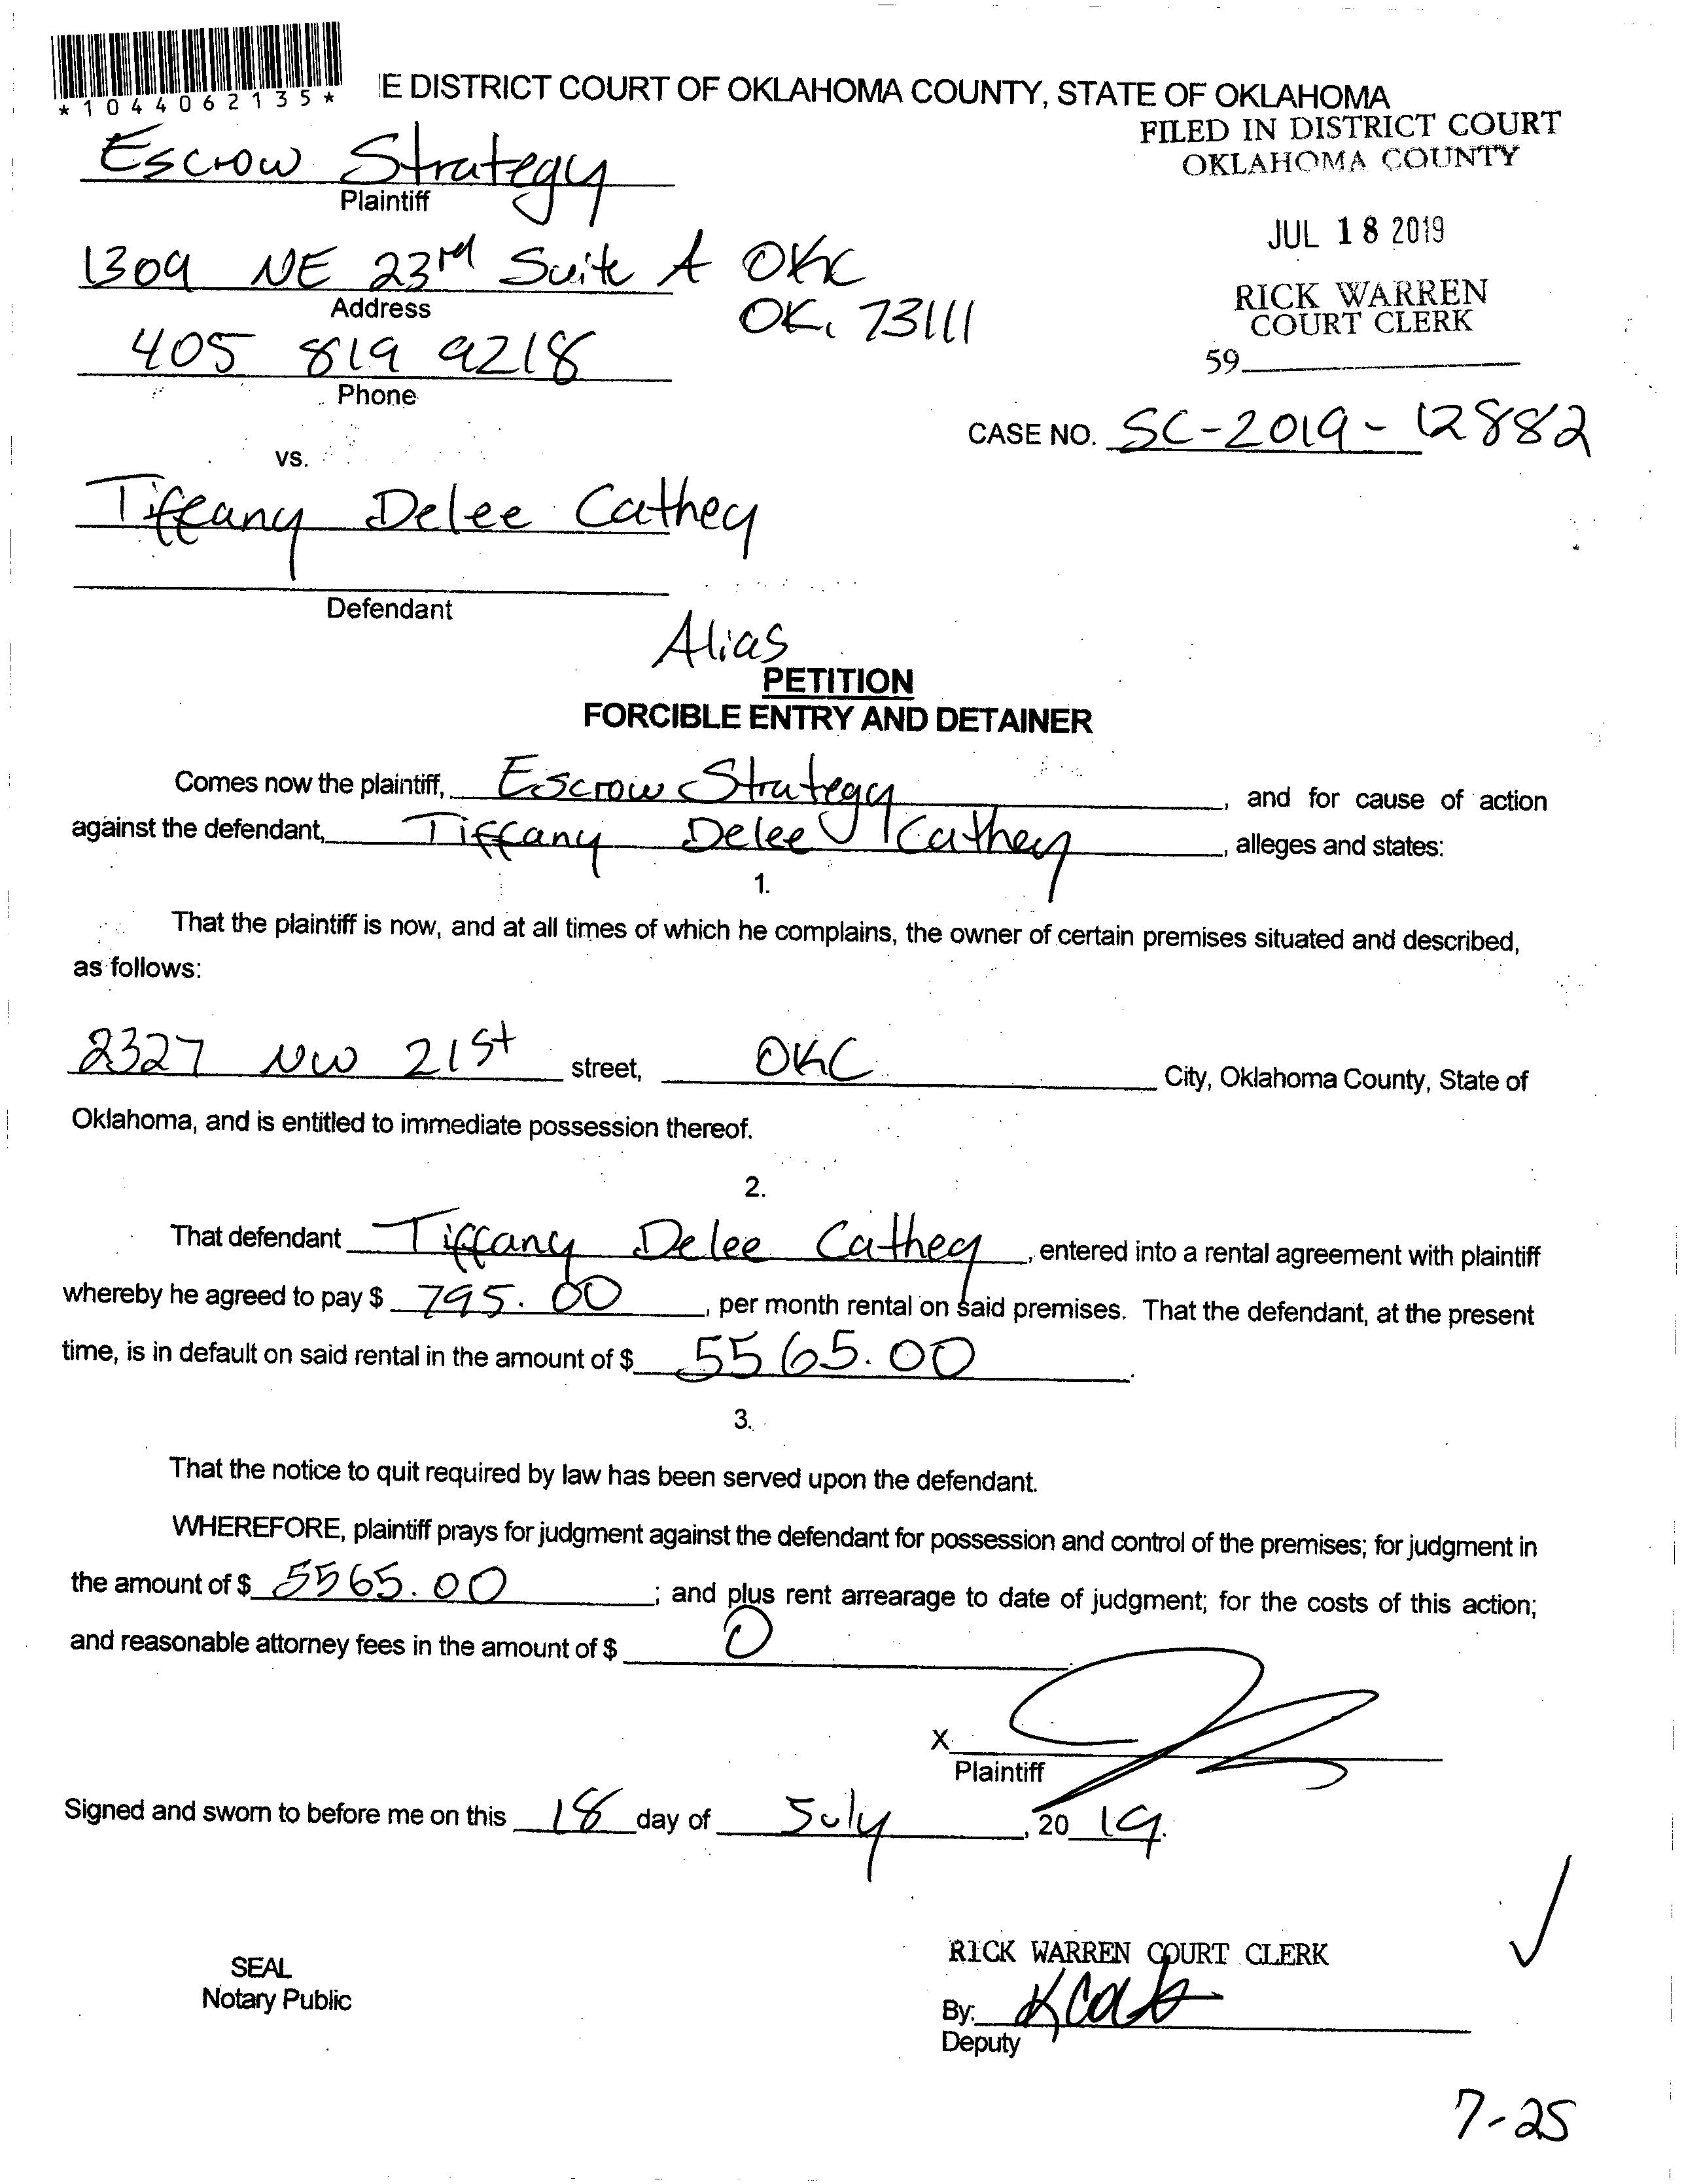 *1044062135*
E DISTRICT COURT OF OKLAHOMA COUNTY, STATE OF OKLAHOMA
FILED IN DISTRICT COURT
OKLAHOMA COUNTY
Escrow Strategy
Plaintiff
JUL 18 2019
1309 NE 23rd Suite A OKC
OK. 73111
Address
RICK WARREN
COURT CLERK
405 819 9218
Phone
59
CASE NO. SC-2019-12882
vs.
Tiffany Delee Cathey
Defendant
Alias
PETITION
FORCIBLE ENTRY AND DETAINER
Comes now the plaintiff, Escrow Strategy, and for cause of action
against the defendant, Tiffany Delee Cathey, alleges and states:
1.
That the plaintiff is now, and at all times of which he complains, the owner of certain premises situated and described,
as follows:
2327 NW 21st street, OKC City, Oklahoma County, State of
Oklahoma, and is entitled to immediate possession thereof.
2.
That defendant Tiffany Delee Cathey, entered into a rental agreement with plaintiff
whereby he agreed to pay $ 795.00, per month rental on said premises. That the defendant, at the present
time, is in default on said rental in the amount of $ 5565.00.
3.
That the notice to quit required by law has been served upon the defendant.
WHEREFORE, plaintiff prays for judgment against the defendant for possession and control of the premises; for judgment in
the amount of $ 5565.00; and plus rent arrearage to date of judgment; for the costs of this action;
and reasonable attorney fees in the amount of $ 0.
X
Plaintiff
Signed and sworn to before me on this 18 day of July, 20 19.
RICK WARREN COURT CLERK
SEAL
Notary Public
By:
Deputy
7-25